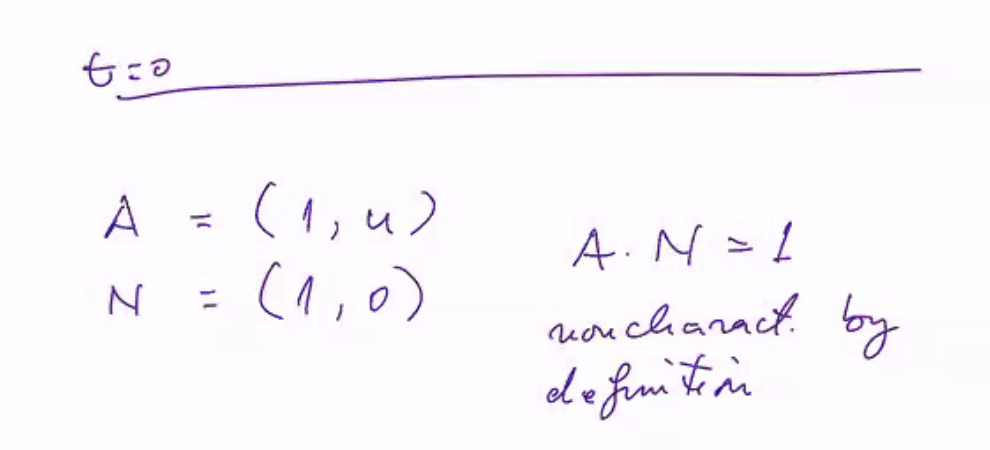 t=0
A = (1, u)
N = (1, 0)
A · N = 1
noncharact. by
definition